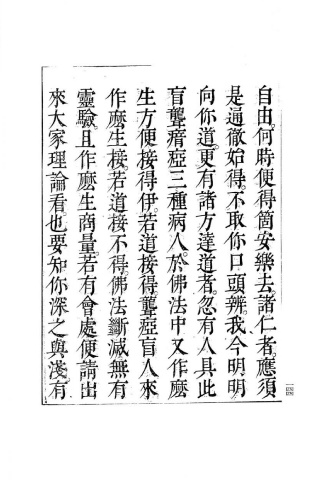 自由。何時便得箇安樂去。諸仁者。應須
是通徹始得。不取你口頭辨。我今明明
向你道。更有諸方達道者。忽有人具此
盲聾瘖瘂三種病人。於佛法中又作麽
生方便接得伊。若道接得。聾瘂盲人來
作麽生接。若道接不得。佛法斷滅無有
靈驗。且作麽生商量。若有會處便請出
來大家理論看。也要知你深之與淺。有